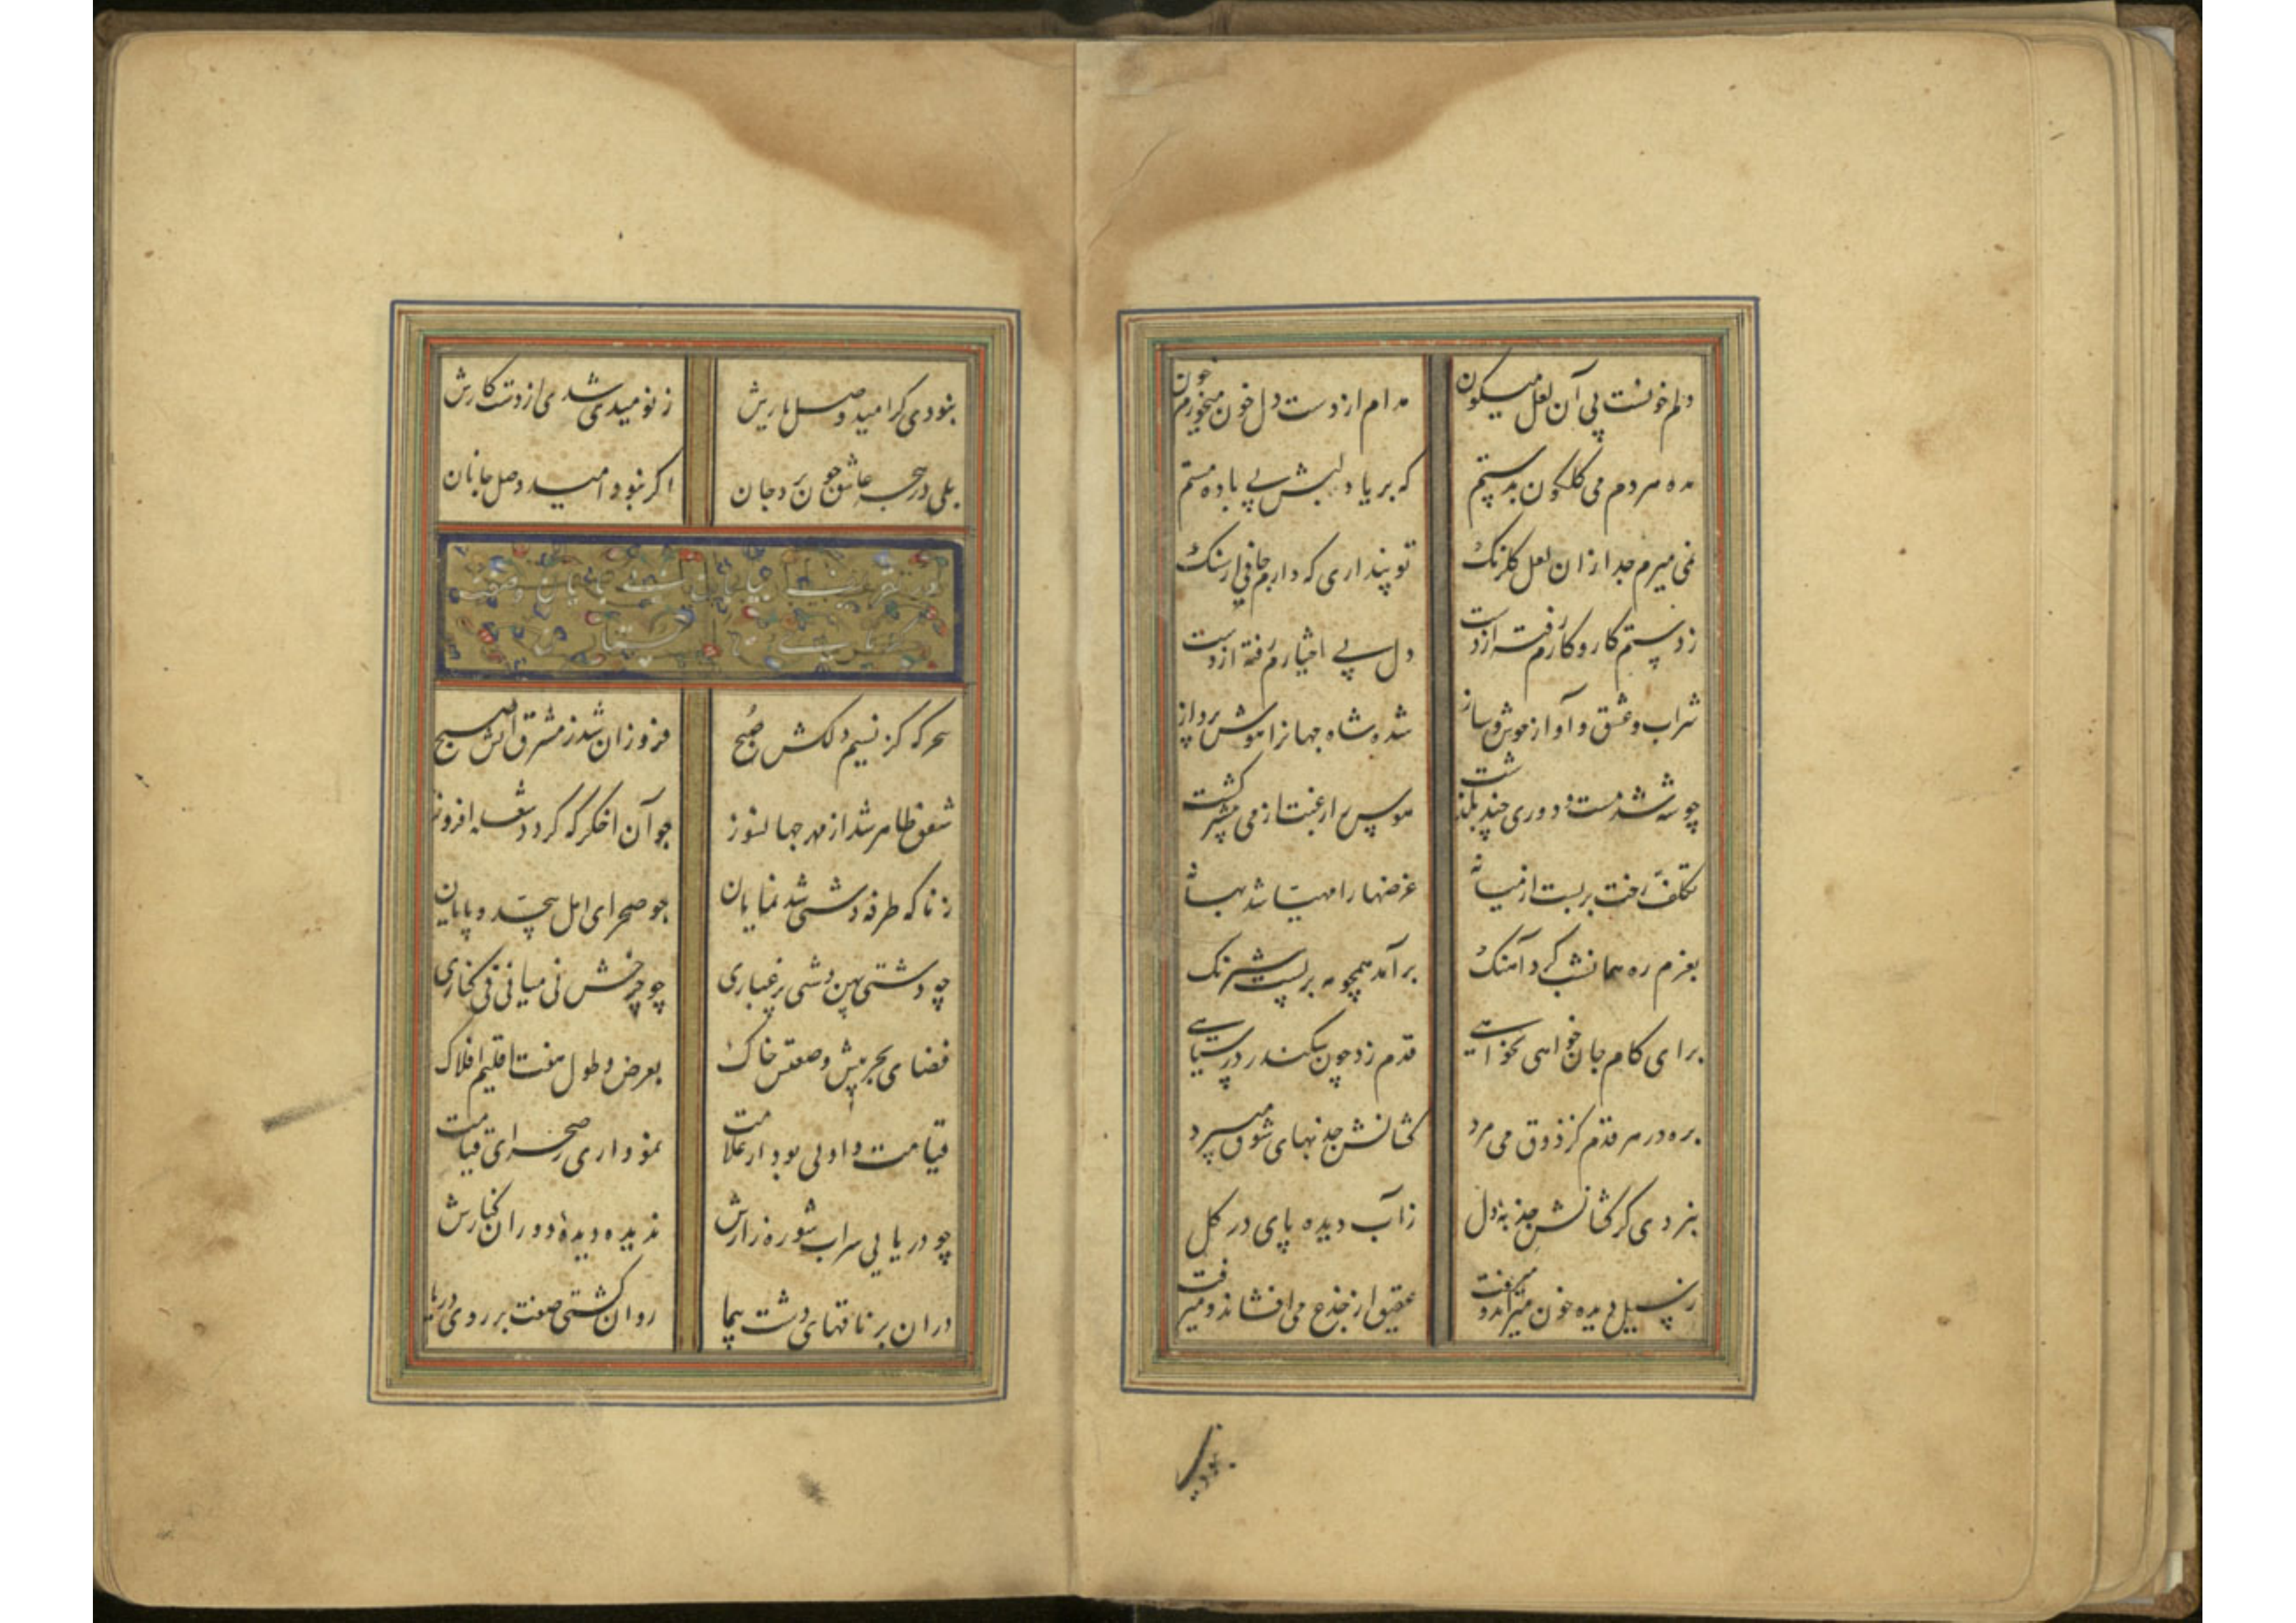 دلم خونست بی آن لعل میکون مدام از دست دل خون میخورم خون
مده مردم می کلکون بدستم که بر یاد لبش بی باده مستم
نمی میرم جدا زان لعل کلرنک تو پنداری که دارم جانی از سنک
ز دستم کار و کارم رفته از دست دل بی اختیارم رفته از دست
شراب و عشق و آواز خوش و ساز شده شاه جهانرا هوش پرداز
چو شه شد مست و دوری چند بگذشت هوس را رغبت از می بیشتر کشت
تکلف رخت بربست از میانه غرضها را مهیا شد بهانه
بعزم ره همانشب کرد آهنک برآمد همچو مه بر پشت شبرنک
برای کام جان خواهی نخواهی قدم زد چون سکندر در سیاهی
بره در هر قدم کز ذوق می مرد کشانش جذبهای شوق میبرد
نبردی کر کشانش جذبه دل ز آب دیده پای در کل
ز سیل دیده خون میراند و میرفت عقیق از جزع می افشاند و میرفت
نبودی کر امید وصل یارش ز نومیدی شدی از دست کارش
بلی در هجر عاشق چون برد جان اکر نبود امید وصل جانان
در تعریف بیابان بی پایان و صفت
سحرکه کز نسیم دلکش صبح فروزان شد ز مشرق آتش صبح
شفق ظاهر شد از مهر جهانسوز چو آن اخکر که کردد شعله افروز
زناکه طرفه دشتی شد نمایان چو صحرای امل بیحد و پایان
چو دشتی پهن دشتی پر غباری چو چرخش نی میانی نی کناری
فضای بحر پیش وسعتش خاک بعرض و طول هفت اقلیم افلاک
قیامت وادیی بود از علامت نموداری ز صحرای قیامت
چو دریایی سراب شوره زارش ندیده دیده دوران کنارش
دران بر ناقهای دشت پیما روان کشتی صفت بر روی دریا
نبودی